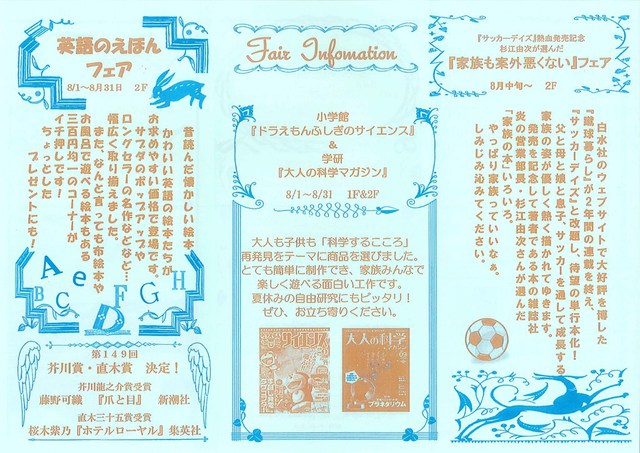 英語のえほん
フェア
8/1～8月31日　2F
昔読んだ懐かしい絵本
かわいい英語の絵本たちが
お求めやすい価格で登場です。
サブダのポップアップや
ロングセラーの名作などなど…
幅広く取り揃えました。
また、なんと言っても布絵本や
お風呂で遊べる絵本もある
三百円均一のコーナーが
イチ押しです！
ちょっとした
プレゼントにも！
A e
B C D F G H
第149回
芥川賞・直木賞　決定！
芥川龍之介賞受賞
藤野可織　『爪と目』　新潮社
直木三十五賞受賞
桜木紫乃『ホテルローヤル』集英社
Fair Infomation
小学館
『ドラえもんふしぎのサイエンス』
&
学研
『大人の科学マガジン』
8/1～8/31　1F&2F
大人も子供も「科学するこころ」
再発見をテーマに商品を選びました。
とても簡単に制作でき、家族みんなで
楽しく遊べる面白い工作です。
夏休みの自由研究にもピッタリ！
ぜひ、お立ち寄りください。
サイエンス
大人の科学
プラネタリウム
『サッカーデイズ』熱血発売記念
杉江由次が選んだ
『家族も案外悪くない』フェア
8月中旬～　2F
白水社のウェブサイトで大好評を博した
『蹴球暮らし』が2年間の連載を終え、
『サッカーデイズ』と改題し、待望の単行本化！
父と母と娘と息子、サッカーを通して成長する
家族の姿が優しく熱く描かれてゆきます。
発売を記念して著者である本の雑誌社
炎の営業部長・杉江由次さんが選んだ
「家族の本」いろいろ。
やっぱり家族っていいなぁ。
しみじみ沁みてください。